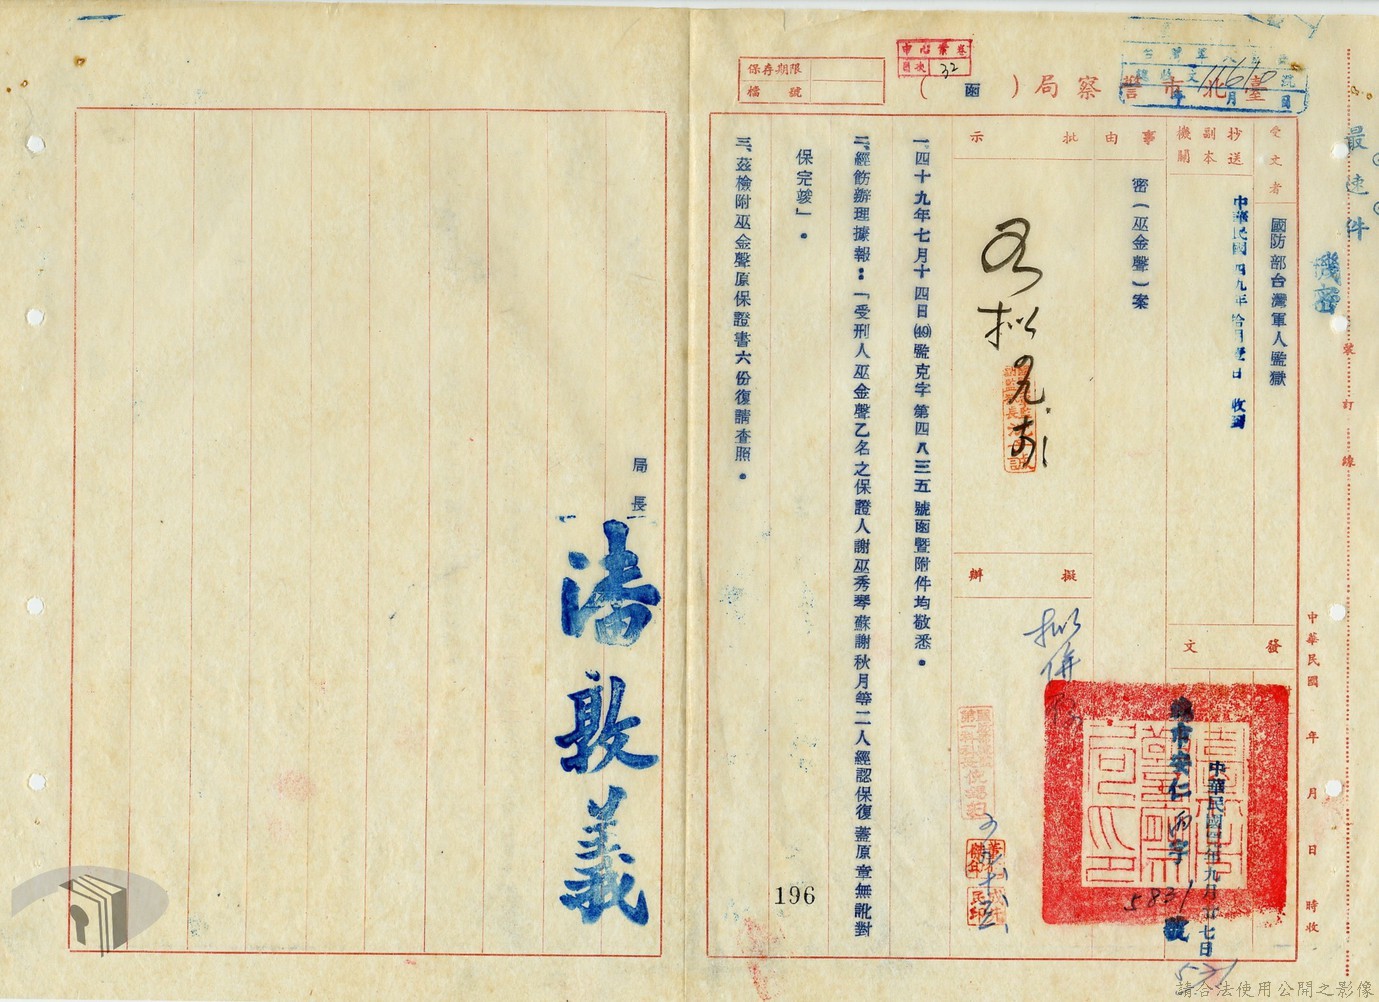 最速件
機密
裝
訂
線
中華民國 年 月 日 時收
臺北市警察局
(函)
保存期限
檔號
32
受文者
國防部台灣軍人監獄
抄送
副本
機關
中華民國四九年拾月壹日 收到
發文
中華民國四九年九月廿七日
北市安仁丙字
5831
號
531
事由
密(巫金聲)案
批示
擬辦
一、四十九年七月十四日(49)監克字第四八三五號函暨附件均敬悉。
二、經飭辦理據報:「受刑人巫金聲乙名之保證人謝巫秀琴蘇謝秋月等二人經認保復蓋原章無訛對
保完竣」。
三、茲檢附巫金聲原保證書六份復請查照。
局長
潘敦義
196
請合法使用公開之影像